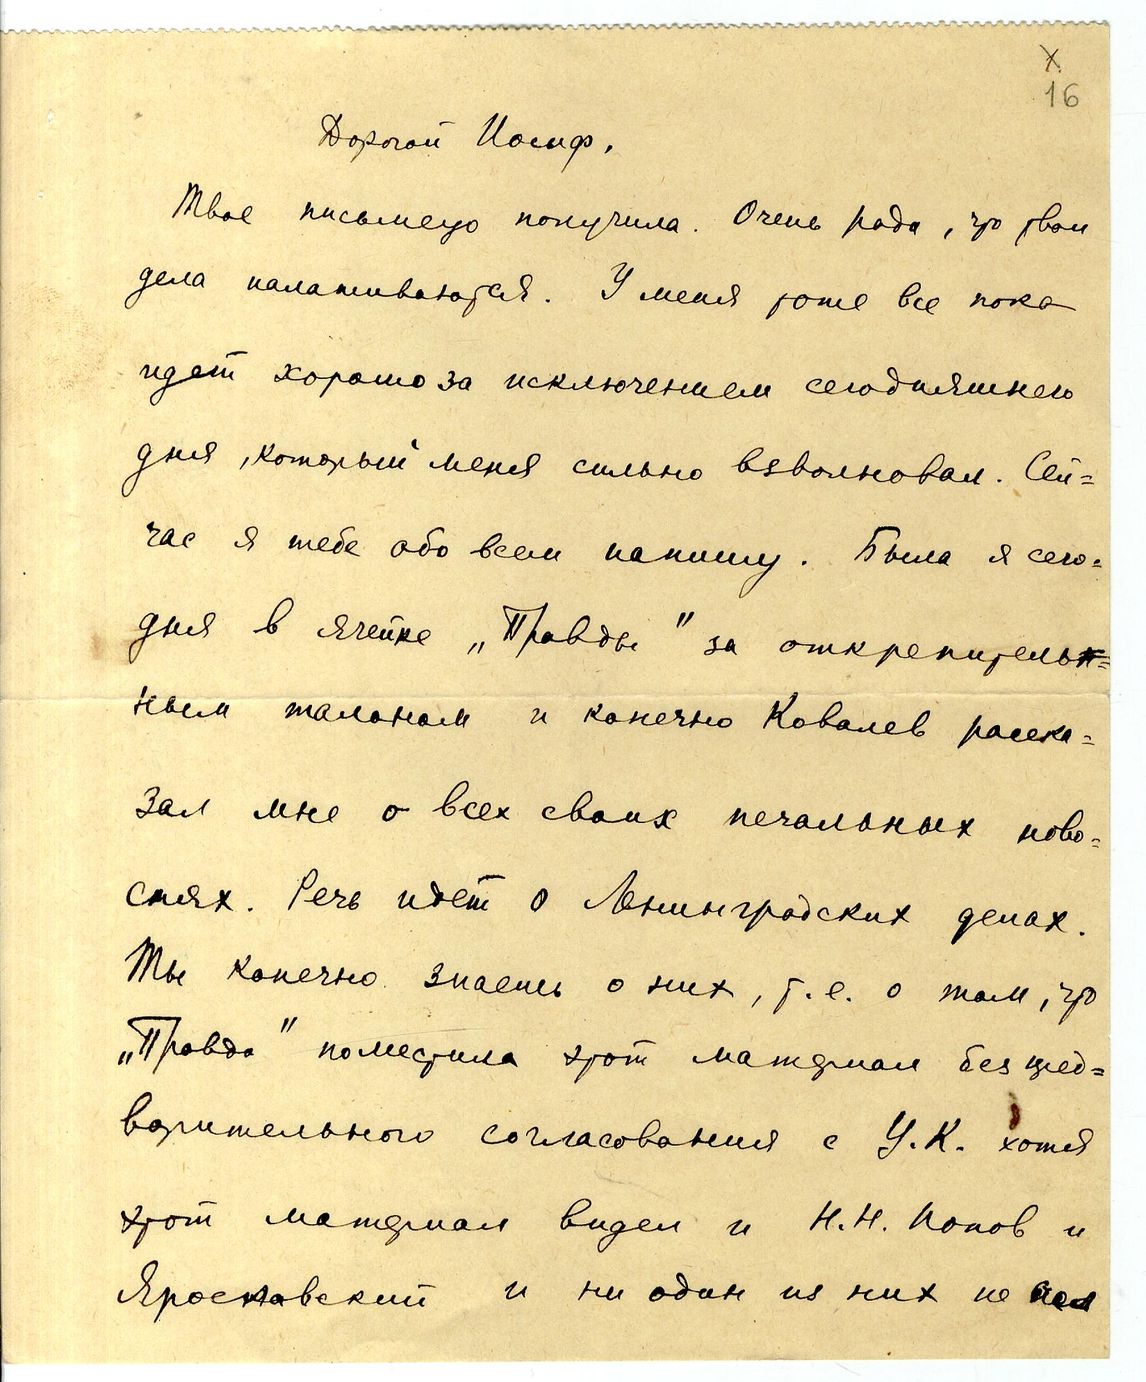 X.
16
Дорогой Иосиф.
Твое письмецо получила. Очень рада, что твои
дела налаживаются. У меня тоже все пока
идет хорошо за исключением сегодняшнего
дня, который меня сильно взволновал. Сей=
час я тебе обо всем напишу. Была я сего=
дня в ячейке „Правды" за открепитель=
ным талоном и конечно Ковалев расска=
зал мне о всех своих печальных ново=
стях. Речь идет о Ленинградских делах.
Ты конечно знаешь о них, т.е. о том, что
„Правда" поместила этот материал без пред=
варительного согласования с Ц.К. хотя
этот материал видел и Н.Н. Попов и
Ярославский и ни один из них не